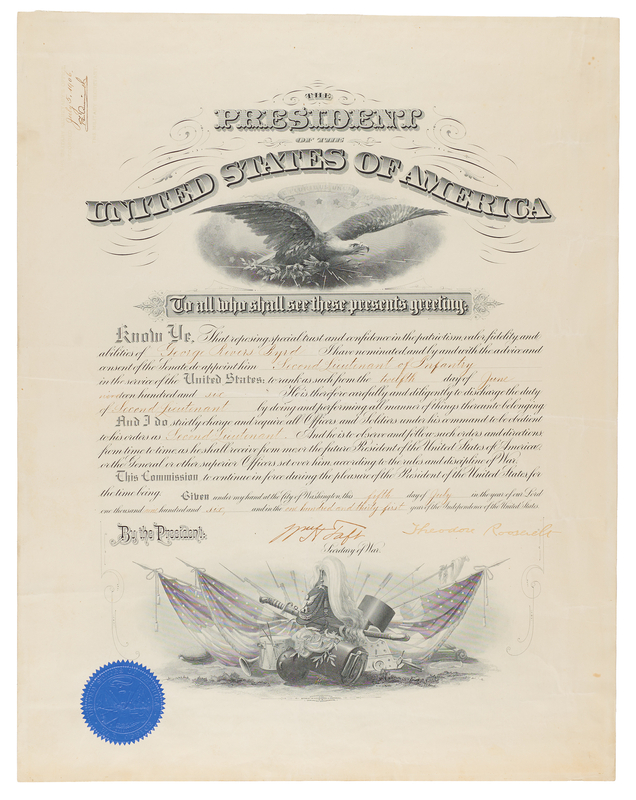 THE
PRESIDENT
OF THE
UNITED STATES OF AMERICA
To all who shall see these presents greeting:
Know Ye, That reposing special trust and confidence in the patriotism, valor, fidelity and
abilities of George Rivers Byrd I have nominated, and by and with the advice and
consent of the Senate do appoint him Second Lieutenant of Infantry
in the service of the United States: to rank as such from the twelfth day of June
nineteen hundred and six He is therefore carefully and diligently to discharge the duty
of Second Lieutenant by doing and performing all manner of things thereunto belonging.
And I do strictly charge and require all Officers and Soldiers under his command to be obedient
to his orders as Second Lieutenant. And he is to observe and follow such orders and directions
from time to time, as he shall receive from me, or the future President of the United States of America,
or the General or other superior Officers set over him, according to the rules and discipline of War.
This Commission to continue in force during the pleasure of the President of the United States for
the time being. Given under my hand at the City of Washington, this fifth day of July in the year of our Lord
one thousand nine hundred and six, and in the one hundred and thirty first year of the Independence of the United States.
By the President:
Wm H Taft
Theodore Roosevelt
Secretary of War.